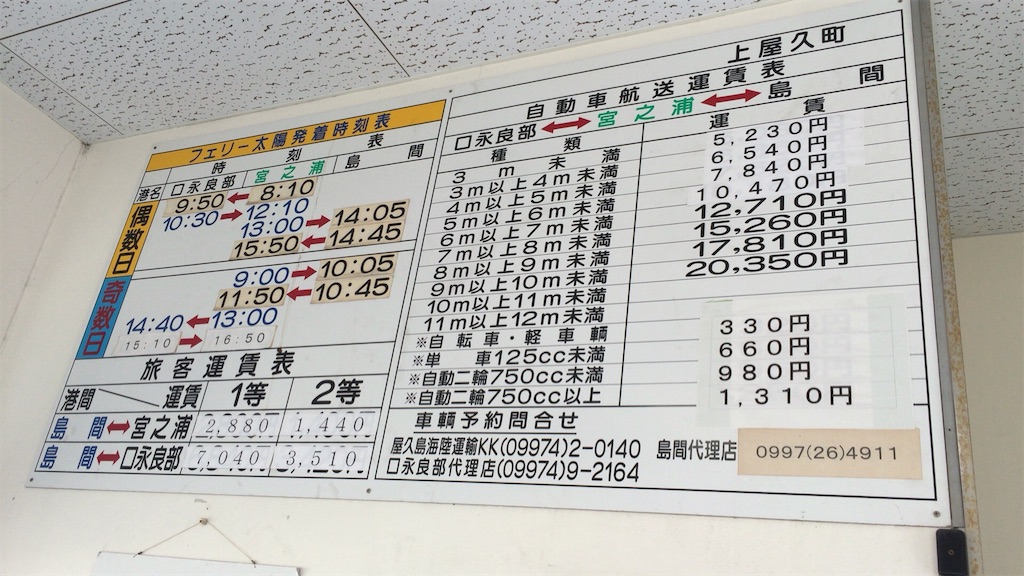 フェリー太陽発着時刻表
時刻表
港名 口永良部 宮之浦 島間
偶数日
9:50 ← 8:10
10:30 → 12:10
13:00 → 14:05
15:50 ← 14:45
奇数日
9:00 → 10:05
11:50 ← 10:45
14:40 ← 13:00
15:10 → 16:50
旅客運賃表
港間 運賃 1等 2等
島間 ↔ 宮之浦 2,880 1,440
島間 ↔ 口永良部 7,040 3,510
上屋久町
自動車航送運賃表
口永良部 ↔ 宮之浦 ↔ 島間
種類 運賃
3m未満 5,230円
3m以上4m未満 6,540円
4m以上5m未満 7,840円
5m以上6m未満 10,470円
6m以上7m未満 12,710円
7m以上8m未満 15,260円
8m以上9m未満 17,810円
9m以上10m未満 20,350円
10m以上11m未満
11m以上12m未満
※自転車・軽車輌 330円
※単車125cc未満 660円
※自動二輪750cc未満 980円
※自動二輪750cc以上 1,310円
車輌予約問合せ
屋久島海陸運輸KK(09974)2-0140 島間代理店 0997(26)4911
口永良部代理店(09974)9-2164